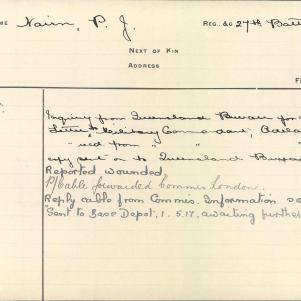 ME Nairn, P. J. REG. &c 27th Batt
NEXT OF KIN
ADDRESS
Inquiry from Queensland Bureau for
Letter to Military Comdant, Adela
" recd from " "
copy sent on to Queensland Bureau
Reported wounded.
P/Cable forwarded Commis London.
Reply cable from Commis. Information se
Sent to Base Depot, 1.5.17, awaiting further